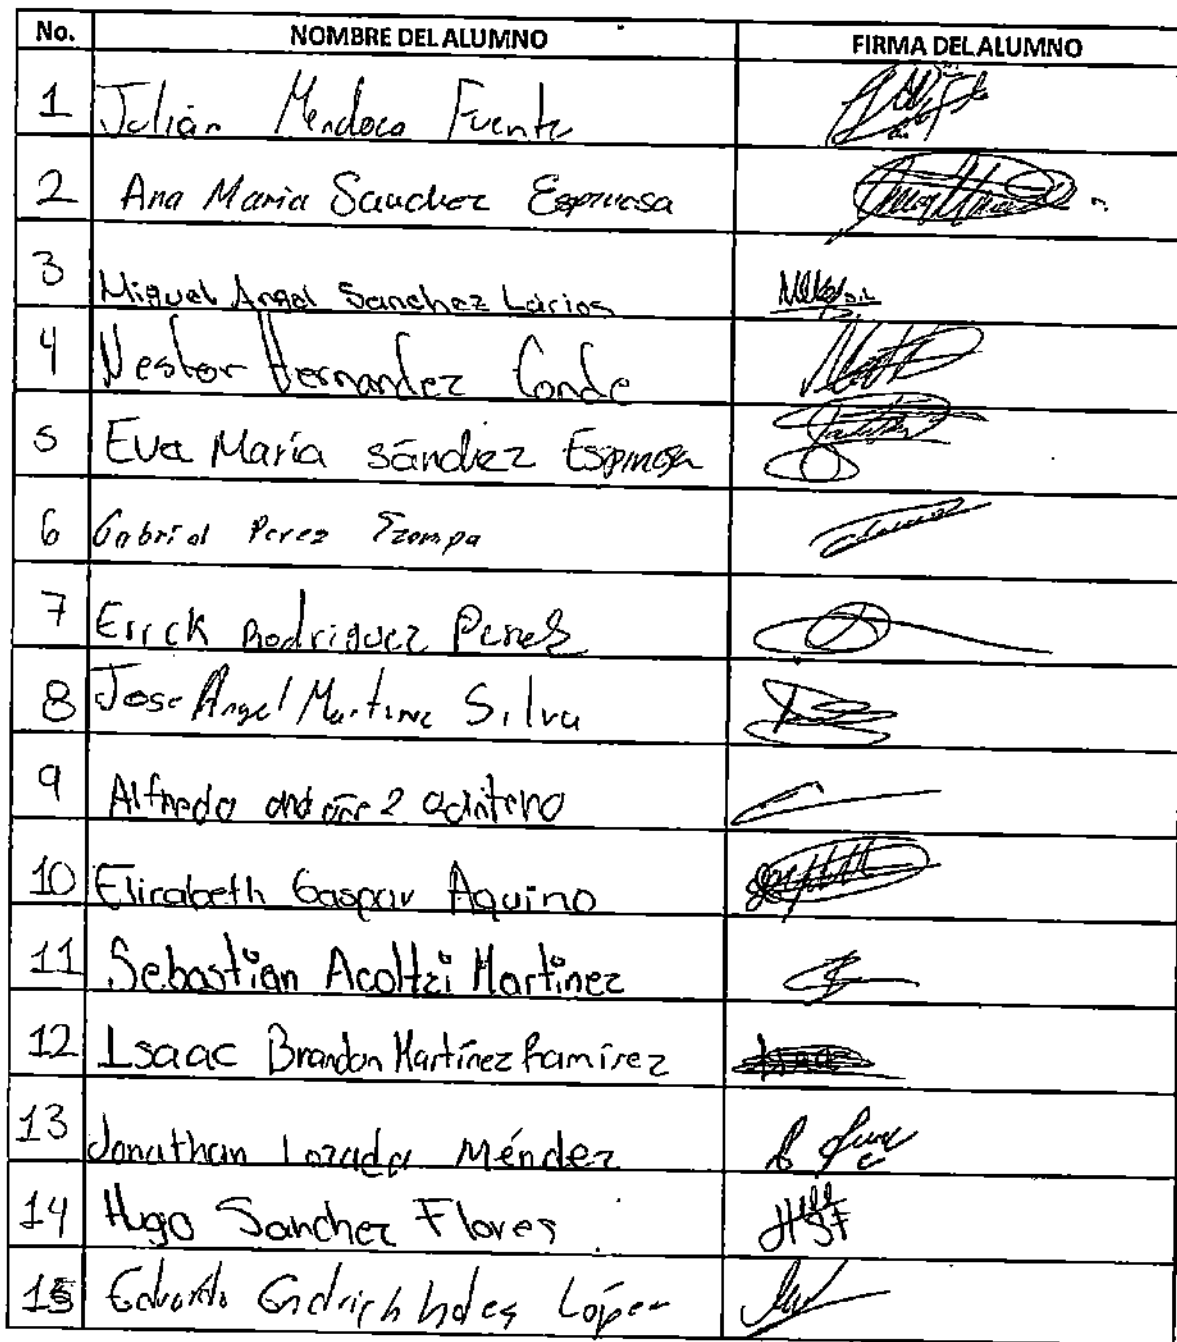 No. NOMBRE DEL ALUMNO FIRMA DEL ALUMNO
1 Julián Mendoza Fuente
2 Ana Maria Sanchez Espinosa
3 Miguel Angel Sanchez Larios
4 Nestor Hernandez Conde
5 Eva María sánchez Espinosa
6 Gabriel Perez Tzompa
7 Erick Rodriguez Perez
8 Jose Angel Martinez Silva
9 Alfredo
10 Elizabeth Gaspar Aquino
11 Sebastian Acoltzi Martinez
12 Isaac Brandon Martínez Ramírez
13 Jonathan Lozada Méndez
14 Hugo Sanchez Flores HSF
15 Eduardo López